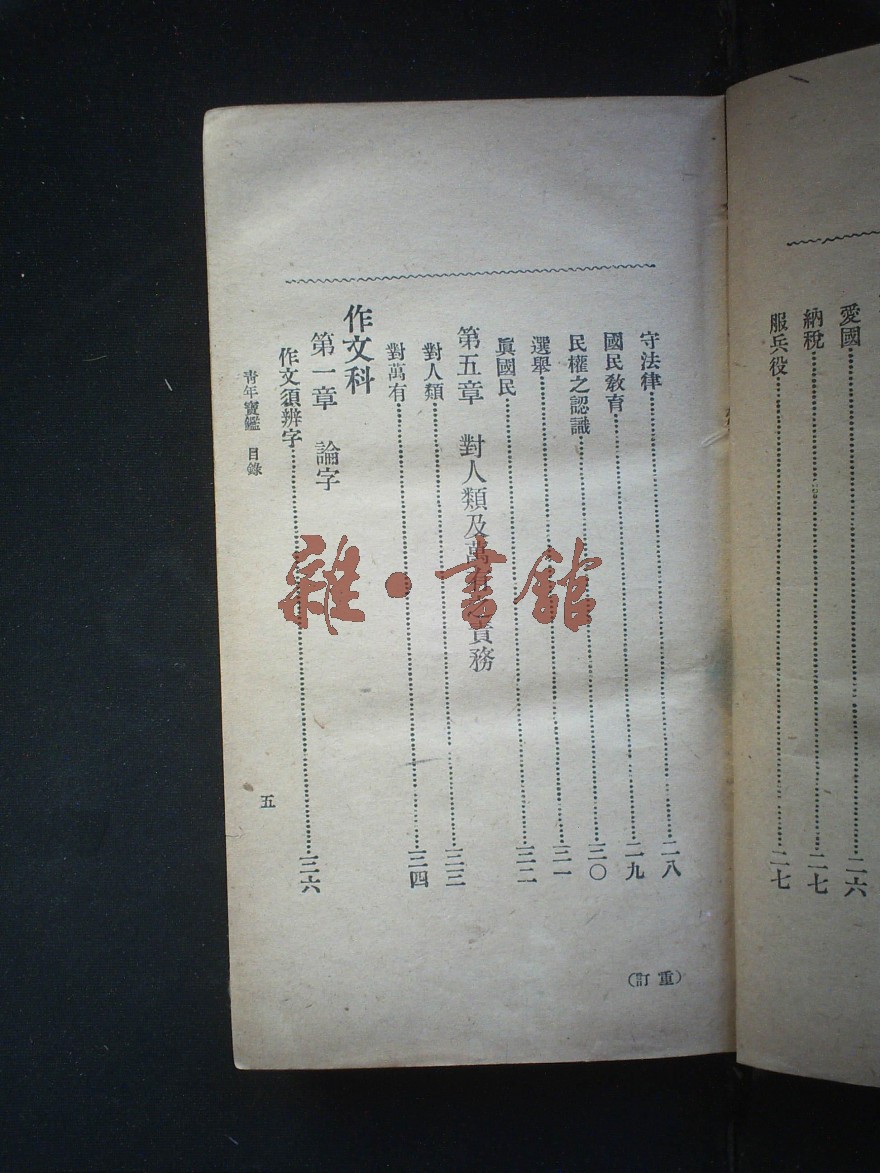 愛國……二六
納稅……二七
服兵役……二七
守法律……二八
國民教育……二九
民權之認識……三〇
選舉……三一
眞國民……三二
第五章　對人類及萬有之責務
對人類……三三
對萬有……三四
作文科
第一章　論字
作文須辨字……三六
靑年寶鑑　目錄
五
（重訂）
雜·書館